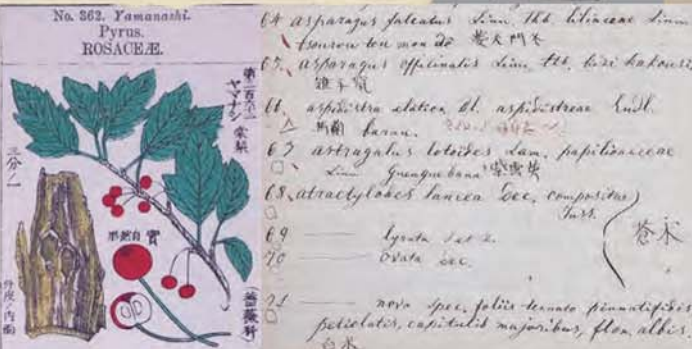 No. 362. Yamanashi.
Pyrus.
ROSACEÆ.
ヤマナシ 棠梨
三分ノ一
實 自然形
外皮ノ内面
(薔薇科)
64 asparagus falcatus Linn. Thb. liliaceae Linn.
65. asparagus officinalis Linn. Thb. kizi kakousi,
66. aspidistra elation Bl. aspidistreae Endl.
baran.
67 astragalus lotoides Lam. papilionaceae
Linn 紫雲英
68. atractylodes lancea Dec. compositae
Juss.
蒼朮
69 —— lyrata
70 —— ovata Dec.
71 —— nova spec. foliis ternato pinnatifidis
petiolatis, capitulis majoribus, flor. albis.
白朮